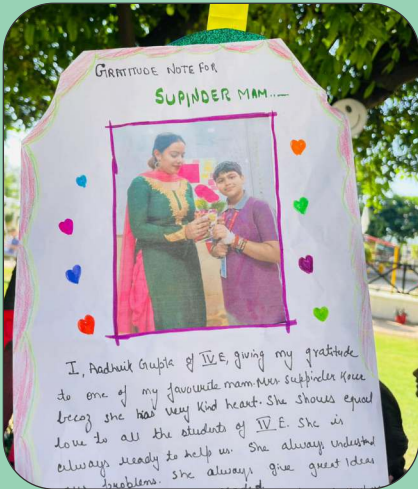 GRATITUDE NOTE FOR
SUPINDER MAM....
I, Aadhvik Gupta of IV E, giving my gratitude
to one of my favourite mam Mrs Suppinder Kour
becoz she has very kind heart. She shows equal
love to all the students of IV E. She is
always ready to help us. She always understand
our problems. She always give great Ideas